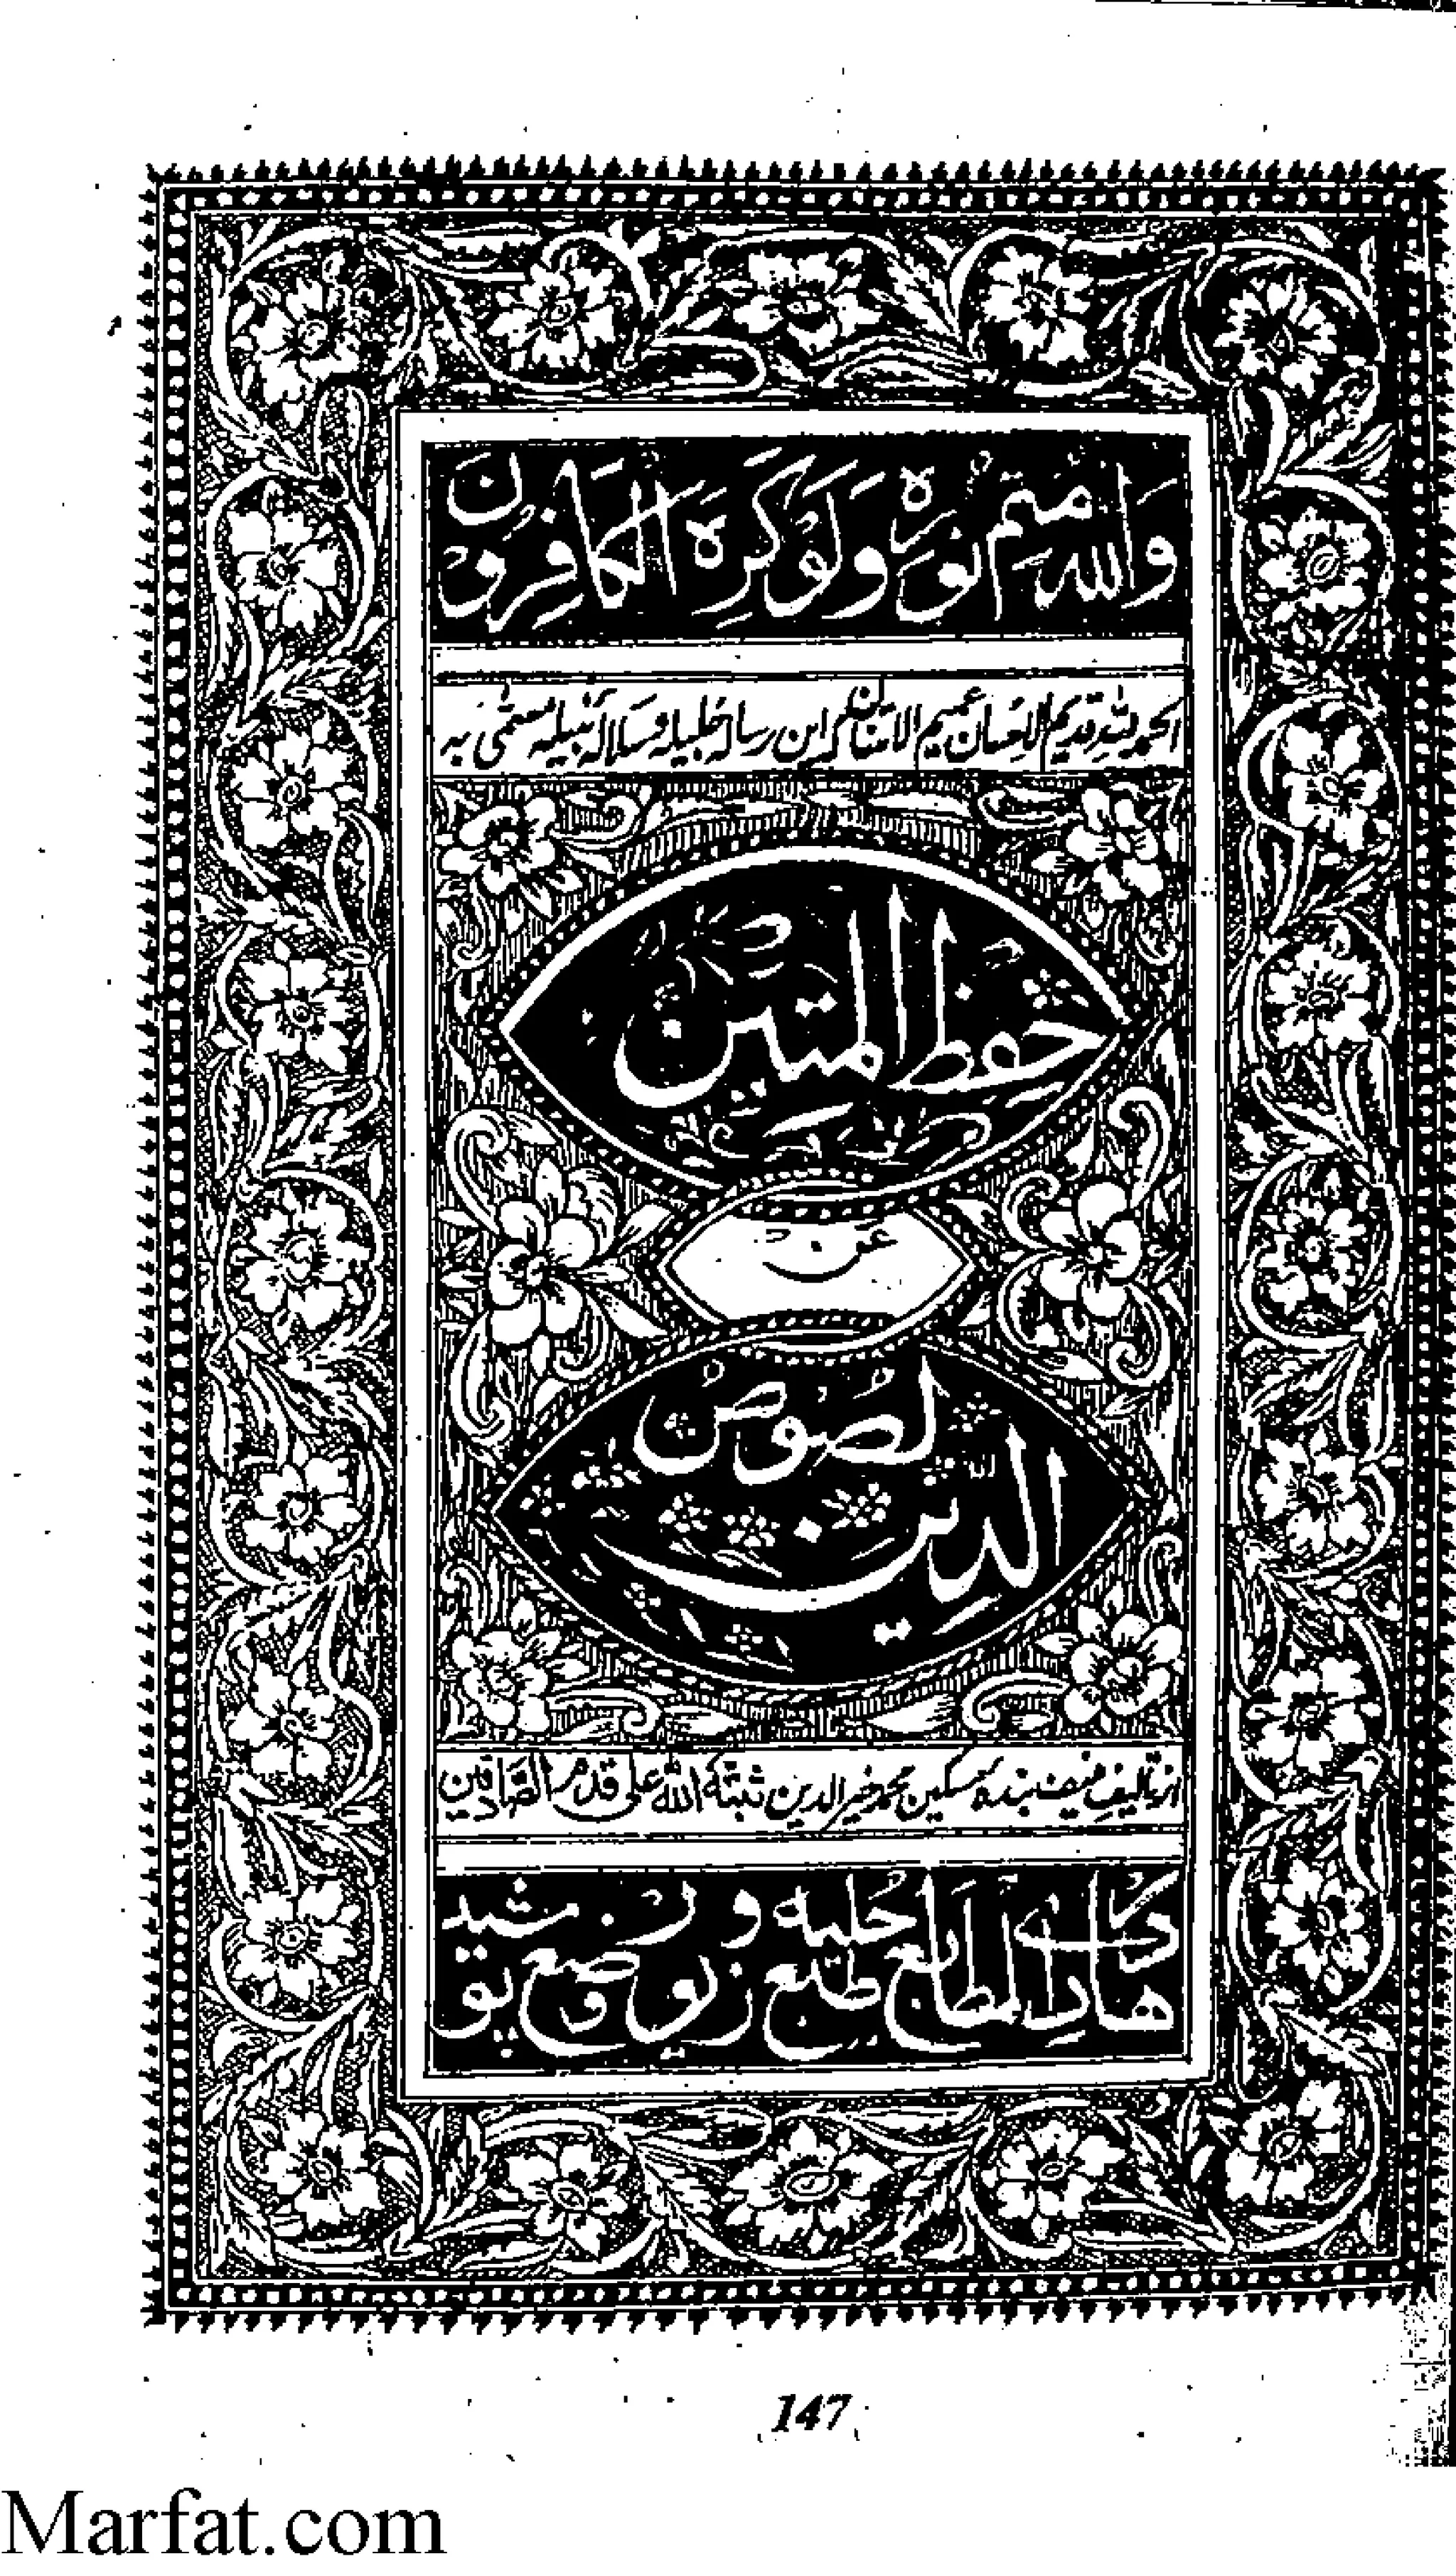 وَاللهُ مُتِمُّ نُورِهٖ وَلَوْ كَرِهَ الْكَافِرُوْنَ
الحمد لله قدیم الاحسان عمیم الامتنان کہ این رسالہ جلیلہ و سلالہ نبیلہ مسمی بہ
حفظ المتین
عن
لصوص
الدین
از تالیف ضیف بندہ مسکین محمد خیر الدین ثبتہ اللہ علی قدم الصادقین
در
ھادی المطابع طبع
حلیہ
زیور وضع پوشید
147
Marfat.com